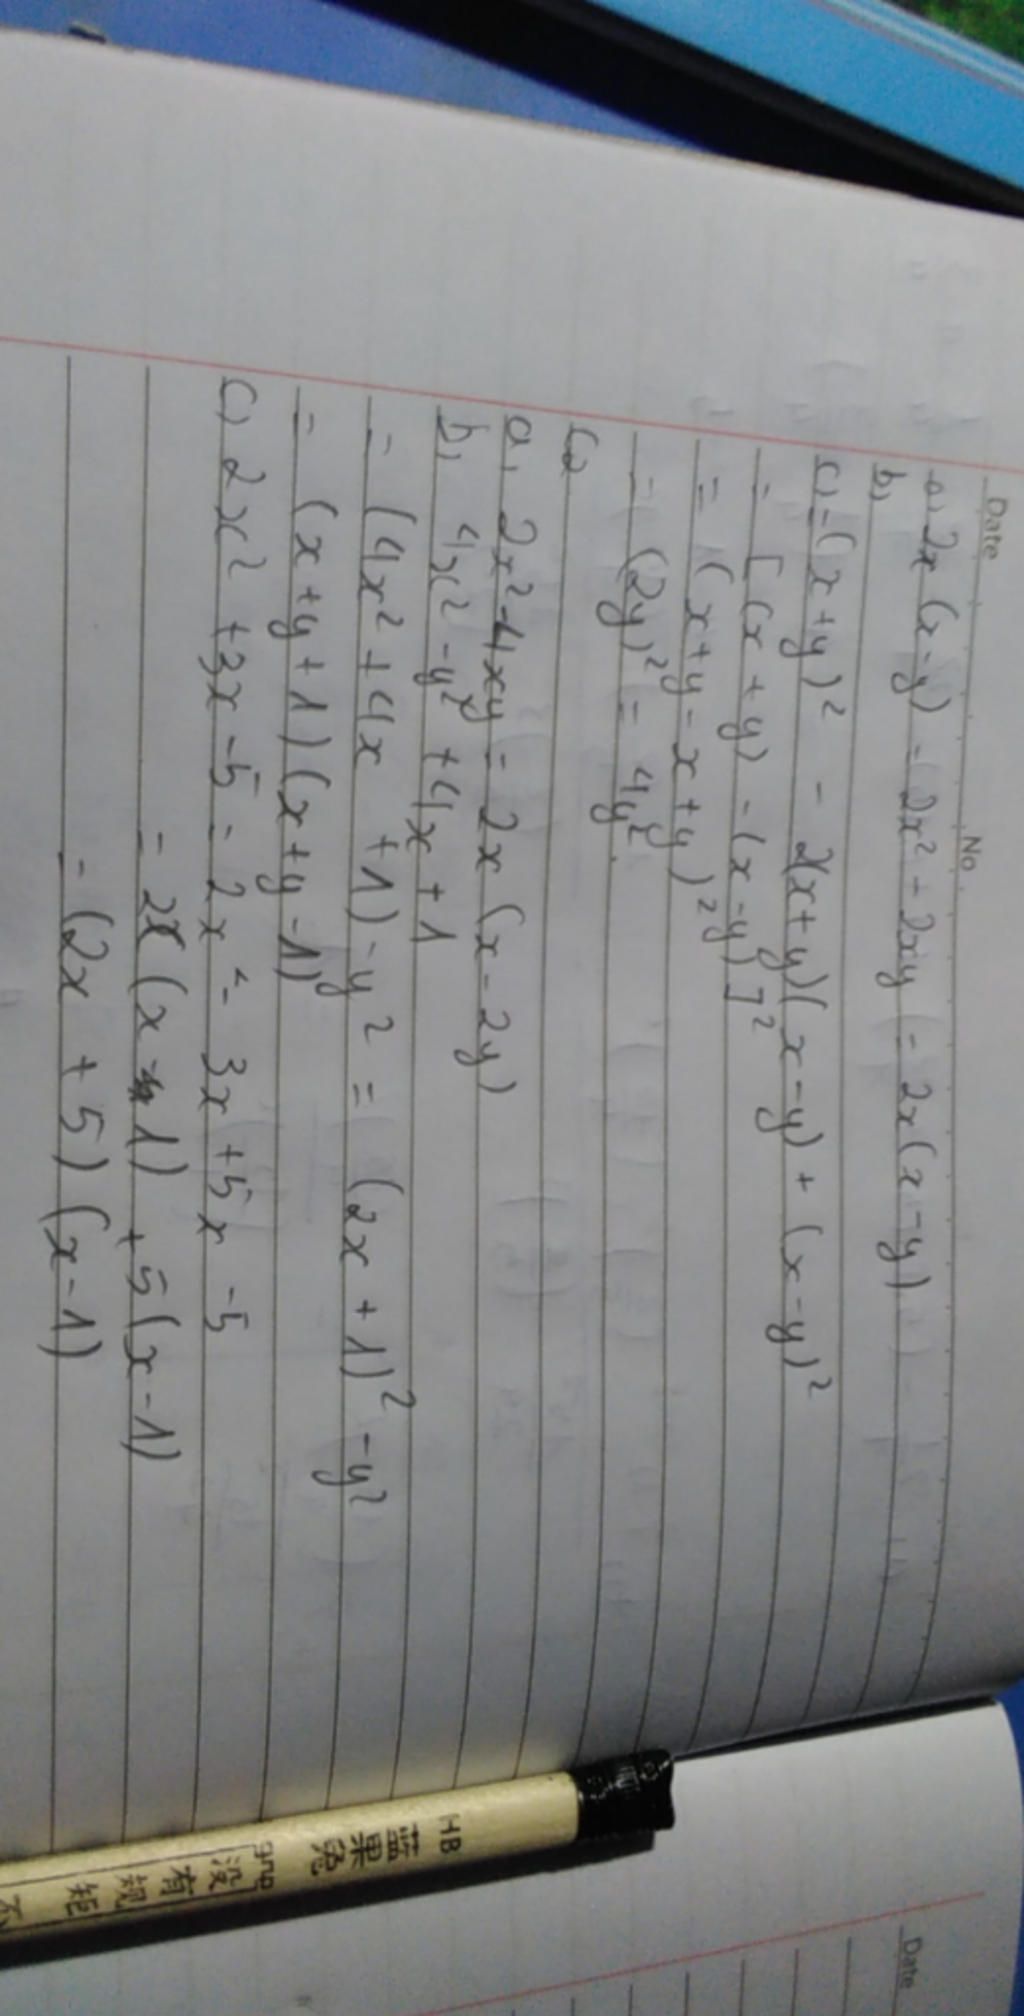 Date No.
a, 2x(x-y) - 2x² + 2xy = 2x(x-y)
b,
c, = (x+y)² - 2(x+y)(x-y) + (x-y)²
= [(x+y) - (x-y)]²
= (x+y-x+y)²
= (2y)² = 4y²
C2
a, 2x²-4xy = 2x(x-2y)
b, 4x²-y² +4x+1
= (4x²+4x +1) -y² = (2x+1)² -y²
= (x+y+1)(x+y-1)
c, 2x² +3x -5 = 2x² - 3x +5x -5
= 2x(x-1) +5(x-1)
= (2x +5)(x-1)
HB
蓝果兔
gng
没有规矩 不
Date